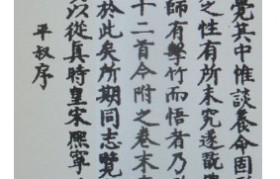 覺其中惟談養命固形
之性有所未究遂翫
師有擊竹而悟者乃
十二首今附之卷末
於此矣所期同志覽
以從真時皇宋熙寧
平叔序